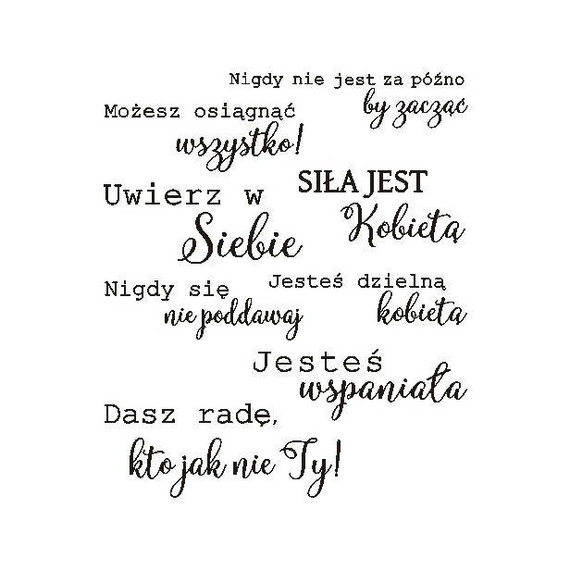 Nigdy nie jest za późno
by zacząc
Możesz osiągnąć
wszystko!
SIŁA JEST
Kobietą
Uwierz w
Siebie
Jesteś dzielną
kobietą
Nigdy się
nie poddawaj
Jesteś
wspaniała
Dasz radę,
kto jak nie Ty!